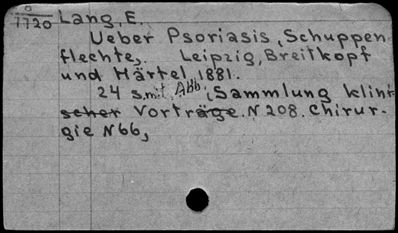 0
7720 Lang, E.
Ueber Psoriasis, Schuppen
flechte,. Leipzig, Breitkopf
und Härtel, 1881.
24 s. mit Abb. (Sammlung klini
scher Vorträge. N 208. Chirur-
gie N 66,